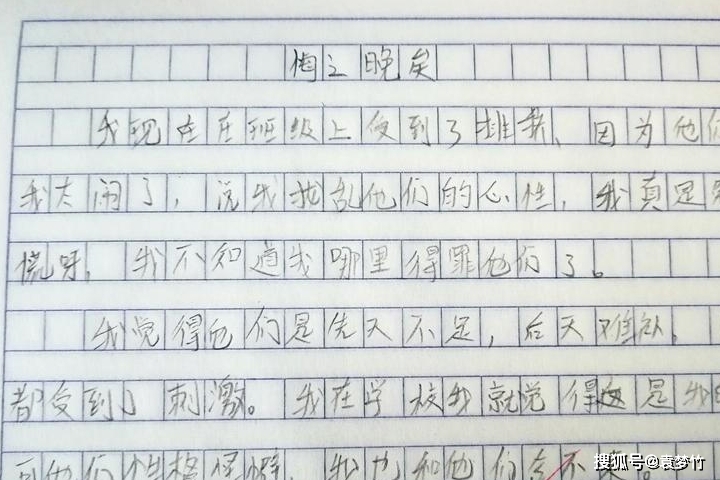 悔之晚矣
我现在在班级上受到了排挤、因为他们
我太闹了，说我扰乱他们的心性，我真是
慌呀。我不知道我哪里得罪他们了。
我觉得他们是先天不足，后天难补。
都受到了刺激。我在学校我就觉得 是我
可他们性格怪癖，我也和他们 不
搜狐号@袁梦竹